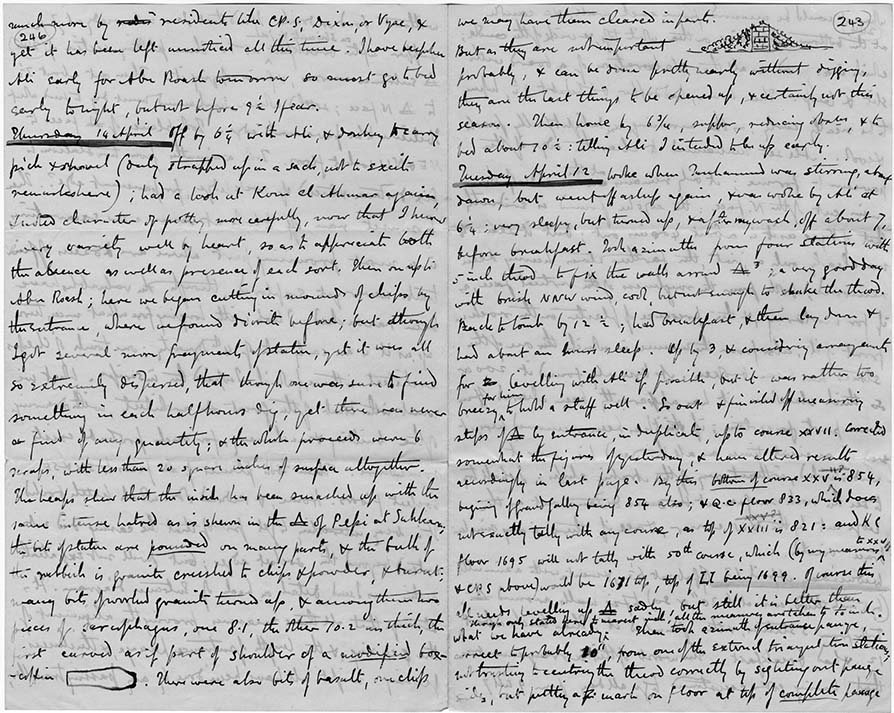 (246)
much more by residents like C.P.S, Dixon, or Vyse, &
yet it has been left unnoticed all this time. I have bespoken
Ali early for Abu Roash tomorrow so must go to bed
early to night, but not before 9½ I fear.
Thursday 14 April off by 6¼ with Ali, & donkey to carry
pick & shovel (only strapped up in a sack, not to excite
remarks here); had a look at Kom el Ahmar again,
character of pottery more carefully, now that I know
every variety well by heart, so as to appreciate both
the absence as well as presence of each sort. Then on up to
Abu Roash; here we began cutting in mounds of chips by
the entrance, where we found diorite before; but although
I got several more fragments of statue, yet it was all
so extremely dispersed, that though one was sure to find
something in each half hours dig, yet there was never
a find of any quantity; & the whole proceeds were 6
scraps, with less than 20 square inches of surface altogether.
The heaps shew that the inside has been smashed up with the
same intense hatred as is shewn in the △ of Pepi at Sakkara;
the bits of statue are pounded on many parts, & the bulk of
the rubbish is granite crushed to chips & powder, & burnt;
many bits of worked granite turned up, & among them two
pieces of sarcophagus, one 8.1, the other 10.2 in thick, the
first curved as if part of shoulder of a modified box-
-coffin. There were also bits of basalt, one chip
(243)
we may have them cleared in part.
But as they are not important
probably, & can be done pretty nearly without digging,
they are the last things to be opened up, & certainly not this
season. Then home by 6¾, supper, reducing obs, & to
bed about 10½: telling Ali I intended to be up early.
Tuesday April 12 woke when Muhammed was stirring, about
dawn, but went off asleep again, & was woke by Ali at
6¼: very sleepy, but turned up, & after my wash, off about 7,
before breakfast. Took azimuths from four stations with
5 inch theod to fix the walls around △ 3; a very good day
with brisk NNW wind, cool, but not enough to shake the theod.
Back to tomb by 12½; had breakfast, & then lay down &
had about an hours sleep. Up by 3, & considering arrangements
for levelling with Ali if possible, but it was rather too
breezy for him to hold a staff well. So out & finished off measuring
steps of △ by entrance, in duplicate, up to course XXVII. Corrected
somewhat the figures of yesterday, & have altered results
accordingly in last page. By this bottom of course XXV is 854,
beginning of grand gallery being 854 also; & Q.C. floor 833, which does
not exactly tally with any course, as top of XXIII is 821: and K C
floor 1695 will not tally with 50th course, which (by my measures to XXV
& C.P.S above) would be 1671 top, top of LI being 1699. Of course this
all needs levelling up △ sadly, but still it is better than
what we have already. Then took azimuth of entrance passage,
correct to probably 10", from one of the external triangulation stations,
not trusting to centering the theod correctly by sighting out passage
sides, but putting a mark on floor at top of complete passage